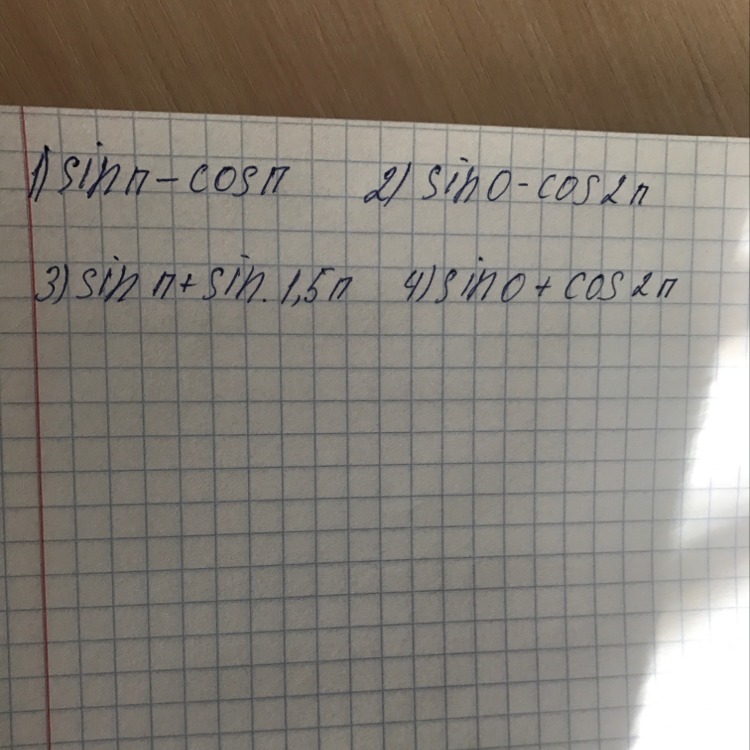 1) sin π - cos π 2) sin 0 - cos 2π
3) sin π + sin. 1,5π 4) sin 0 + cos 2π